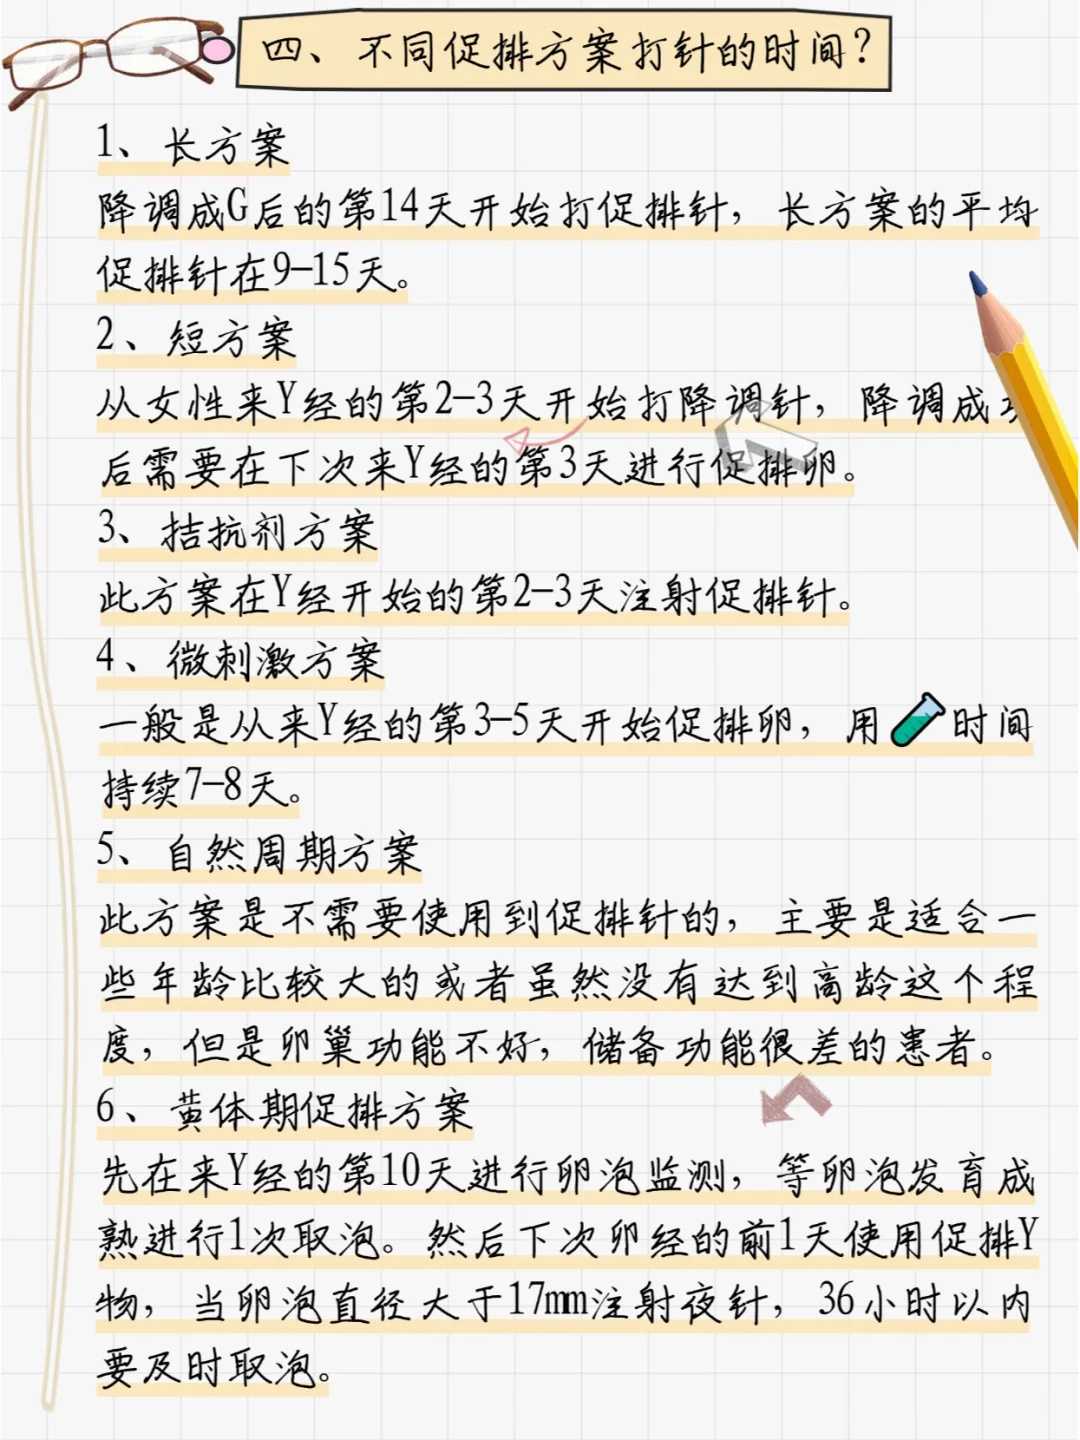 四、不同促排方案打针的时间？
1、长方案
降调成G后的第14天开始打促排针，长方案的平均
促排针在9-15天。
2、短方案
从女性来Y经的第2-3天开始打降调针，降调成
后需要在下次来Y经的第3天进行促排卵。
3、拮抗剂方案
此方案在Y经开始的第2-3天注射促排针。
4、微刺激方案
一般是从来Y经的第3-5天开始促排卵，用时间
持续7-8天。
5、自然周期方案
此方案是不需要使用到促排针的，主要是适合一
些年龄比较大的或者虽然没有达到高龄这个程
度，但是卵巢功能不好，储备功能很差的患者。
6、黄体期促排方案
先在来Y经的第10天进行卵泡监测，等卵泡发育成
熟进行1次取泡。然后下次卵经的前1天使用促排Y
物，当卵泡直径大于17mm注射夜针，36小时以内
要及时取泡。